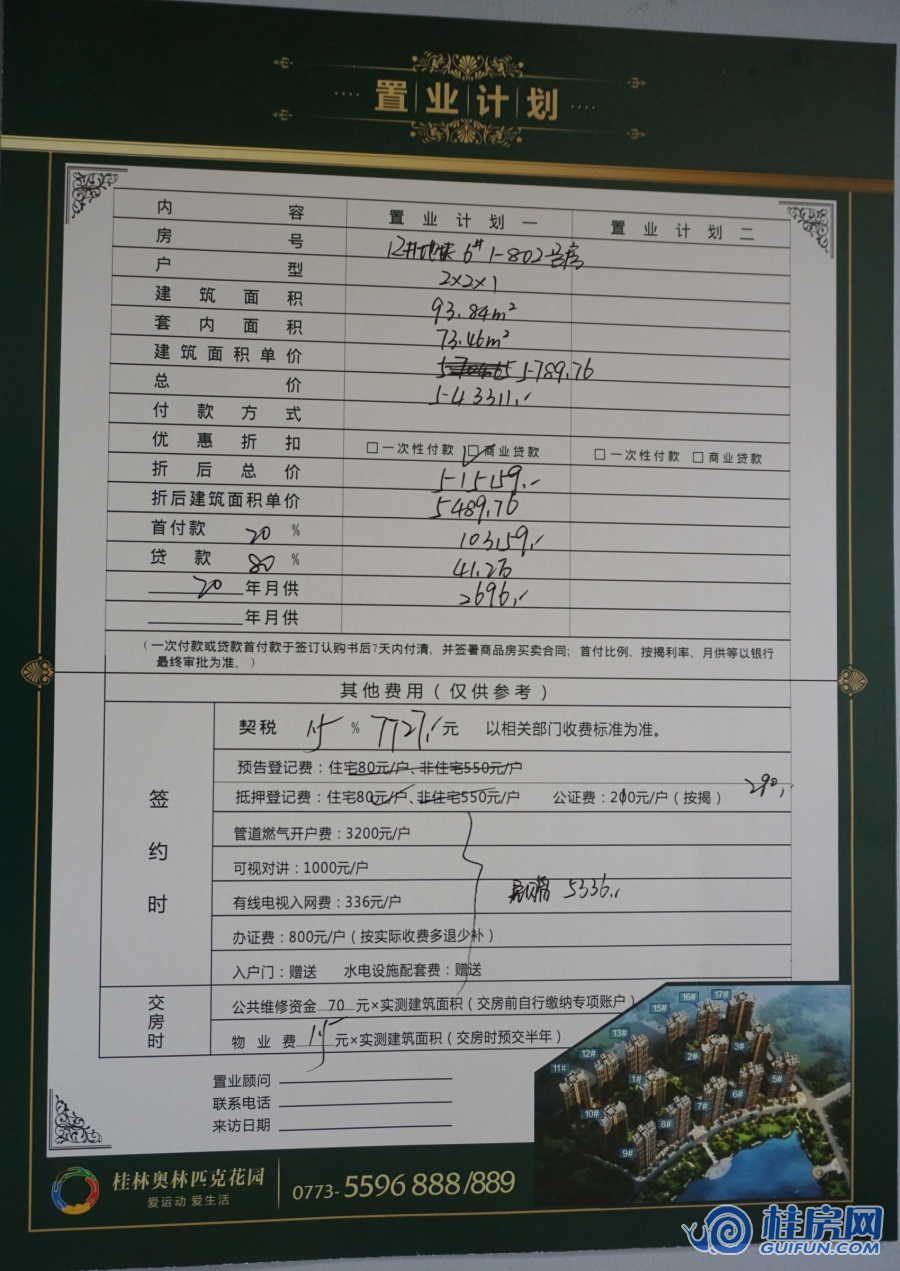 置业计划
内容 置业计划一 置业计划二
房号 6# 1-802号房
户型 2×2×1
建筑面积 93.84m²
套内面积 73.46m²
建筑面积单价 5789.76
总价 543311.-
付款方式
优惠折扣 □一次性付款 □商业贷款 □一次性付款 □商业贷款
折后总价 515159.-
折后建筑面积单价 5489.76
首付款 20 % 103159.-
贷款 80 % 41.2万
20 年月供 2696.-
年月供
（一次付款或贷款首付款于签订认购书后7天内付清，并签署商品房买卖合同；首付比例、按揭利率、月供等以银行
最终审批为准。）
其他费用（仅供参考）
签约时
契税 1.5 % 7727.- 元 以相关部门收费标准为准。
预告登记费：住宅80元/户、非住宅550元/户
抵押登记费：住宅80元/户、非住宅550元/户 公证费：200元/户（按揭） 290.-
管道燃气开户费：3200元/户
可视对讲：1000元/户
有线电视入网费：336元/户 5336.-
办证费：800元/户（按实际收费多退少补）
入户门：赠送 水电设施配套费：赠送
交房时
公共维修资金 70 元×实测建筑面积（交房前自行缴纳专项账户）
物业费 1.5 元×实测建筑面积（交房时预交半年）
置业顾问
联系电话
来访日期
11# 12# 13# 15# 16# 17#
1# 2# 3# 5#
10# 9# 8# 7# 6#
桂林奥林匹克花园
爱运动 爱生活
0773-5596 888/889
桂房网
GUIFUN.COM